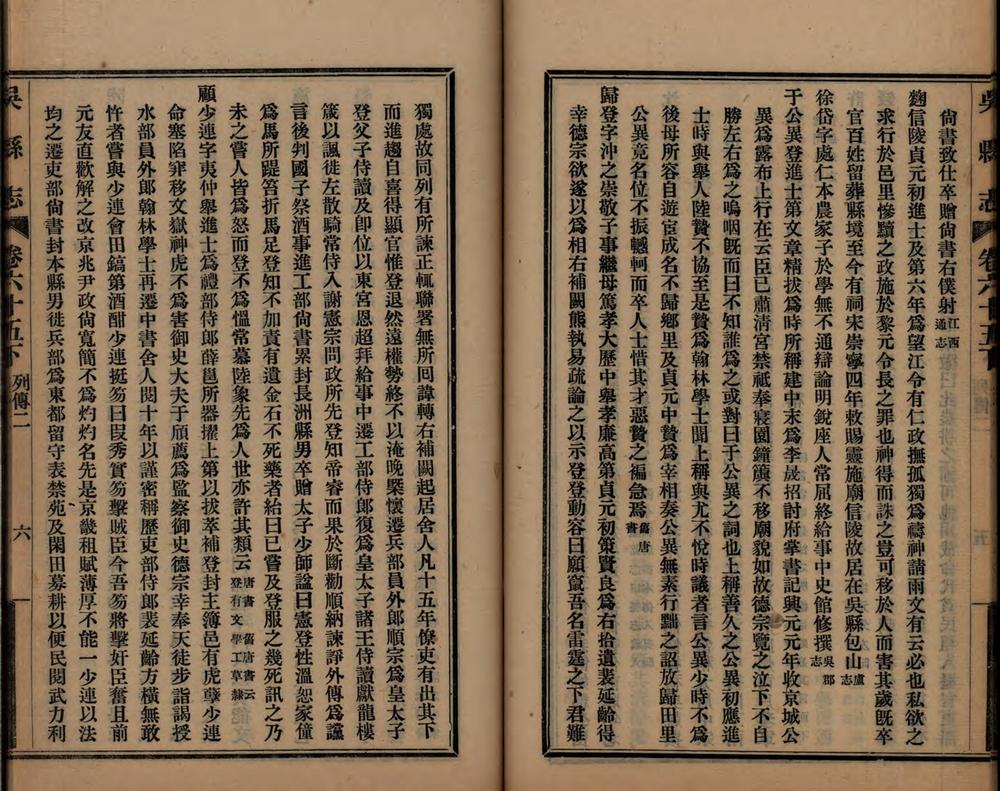 尙書致仕卒贈尙書右僕射江西通志
麴信陵貞元初進士及第六年爲望江令有仁政撫孤獨爲禱神請雨文有云必也私欲之
求行於邑里慘黷之政施於黎元令長之罪也神得而誅之豈可移於人而害其歲旣卒
官百姓留葬縣境至今有祠宋崇寧四年敕賜靈施廟信陵故居在吳縣包山盧志
徐岱字處仁本農家子於學無不通辯論明銳座人常屈終給事中史館修撰吳郡志
于公異登進士第文章精拔爲時所稱建中末爲李晟招討府掌書記興元元年收京城公
異爲露布上行在云臣已肅淸宮禁祗奉寢園鐘簴不移廟貌如故德宗覽之泣下不自
勝左右爲之嗚咽旣而曰不知誰爲之或對曰于公異之詞也上稱善久之公異初應進
士時與舉人陸贄不協至是贄爲翰林學士聞上稱與尤不悅時議者言公異少時不爲
後母所容自遊宦成名不歸鄉里及貞元中贄爲宰相奏公異無素行黜之詔放歸田里
公異竟名位不振轗軻而卒人士惜其才惡贄之褊急焉舊唐書
歸登字沖之崇敬子事繼母篤孝大歷中舉孝廉高第貞元初策賢良爲右拾遺裴延齡得
幸德宗欲遂以爲相右補闕熊執易疏論之以示登登動容曰願竄吾名雷霆之下君難
獨處故同列有所諫正輒聯署無所回諱轉右補闕起居舍人凡十五年僚吏有出其下
而進趨自喜得顯官惟登退然遠權勢終不以淹晚槩懷遷兵部員外郞順宗爲皇太子
登父子侍讀及卽位以東宮恩超拜給事中遷工部侍郞復爲皇太子諸王侍讀獻龍樓
箴以諷徙左散騎常侍入謝憲宗問政所先登知帝睿而果於斷勸順納諫諍外傳爲讜
言後判國子祭酒事進工部尙書累封長洲縣男卒贈太子少師諡曰憲登性溫恕家僮
爲馬所踶笞折馬足登知不加責有遺金石不死藥者紿曰已嘗及登服之幾死訊之乃
未之嘗人皆爲怒而登不爲慍常慕陸象先爲人世亦許其類云唐書 舊唐書云登有文學工草隸
顧少連字夷仲舉進士爲禮部侍郞薛邕所器擢上第以拔萃補登封主簿邑有虎孽少連
命塞陷穽移文嶽神虎不爲害御史大夫于頎薦爲監察御史德宗幸奉天徒步詣謁授
水部員外郞翰林學士再遷中書舍人閱十年以謹密稱歷吏部侍郞裴延齡方橫無敢
忤者嘗與少連會田鎬第酒酣少連挺笏曰段秀實笏擊賊臣今吾笏將擊奸臣奮且前
元友直歡解之改京兆尹政尙寬簡不爲灼灼名先是京畿租賦薄厚不能一少連以法
均之遷吏部尙書封本縣男徙兵部爲東都留守表禁苑及閑田募耕以便民閱武力利
吳縣志
卷六十五下
吳縣志
卷六十五下
列傳二
六